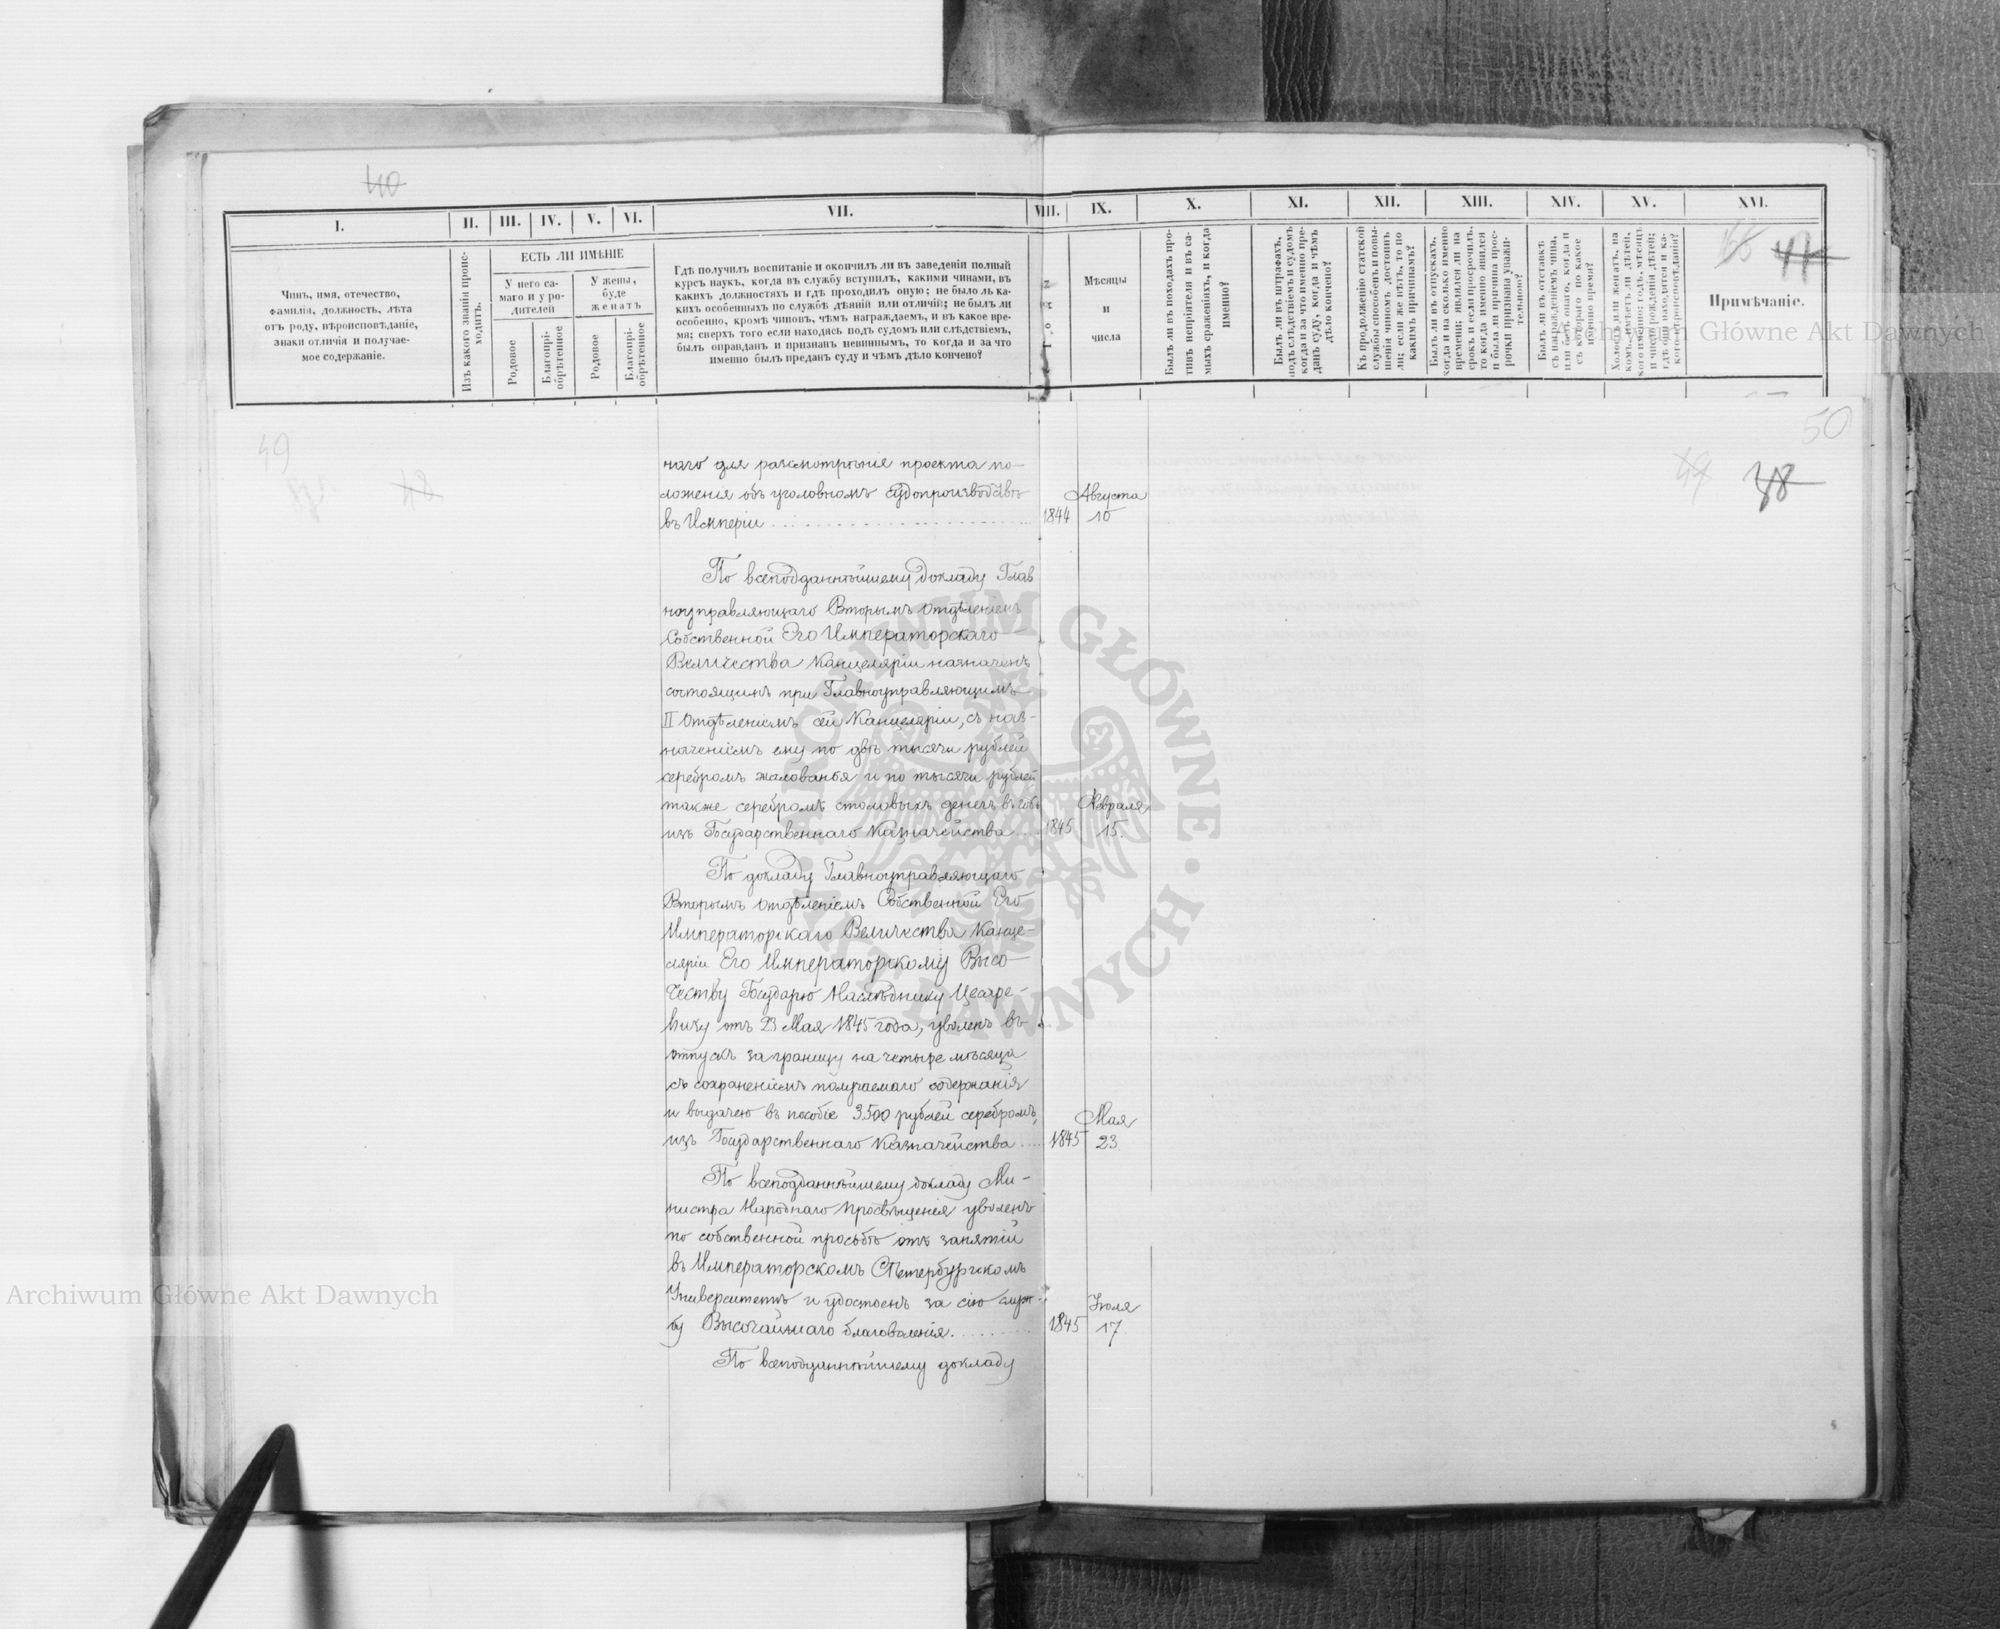 40
I. II. III. IV. V. VI. VII. VIII. IX. X. XI. XII. XIII. XIV. XV. XVI.
Чинъ, имя, отчество,
фамилія, должность, лѣта
отъ роду, вѣроисповѣданіе,
знаки отличія и получае-
мое содержаніе.
Изъ какого званія проис-
ходитъ.
ЕСТЬ ЛИ ИМѢНІЕ
У него са-
маго и у ро-
дителей
У жены,
буде
женатъ
Родовое
Благопрі-
обрѣтенное
Родовое
Благопрі-
обрѣтенное
Гдѣ получилъ воспитаніе и окончилъ ли въ заведеніи полный
курсъ наукъ, когда въ службу вступилъ, какими чинами, въ
какихъ должностяхъ и гдѣ проходилъ оную; не было ль ка-
кихъ особенныхъ по службѣ дѣяній или отличій; не былъ ли
особенно, кромѣ чиновъ, чѣмъ награждаемъ, и въ какое вре-
мя; сверхъ того если находясь подъ судомъ или слѣдствіемъ,
былъ оправданъ и признанъ невиннымъ, то когда и за что
именно былъ преданъ суду и чѣмъ дѣло кончено?
Мѣсяцы
и
числа
Былъ ли въ походахъ про-
тивъ непріятеля и въ са-
мыхъ сраженіяхъ, и когда
именно?
Былъ ли въ штрафахъ,
подъ слѣдствіемъ и судомъ
когда и за что именно пре-
данъ суду, когда и чѣмъ
дѣло кончено?
Къ продолженію статской
службы способенъ и повы-
шенія чиномъ достоинъ
ли; если же нѣтъ, то по
какимъ причинамъ?
Былъ ли въ отпускахъ,
когда и на сколько именно
времени; явился ли на
срокъ и если просрочилъ,
то когда именно явился
и была ли причина прос-
рочки признана уважи-
тельною?
Былъ ли въ отставкѣ
съ награжденіемъ чина,
или безъ онаго, когда и
съ котораго по какое
именно время?
Холостъ или женатъ, на
комъ, имѣетъ ли дѣтей,
кого именно; годъ, мѣсяцъ
и число рожденія дѣтей;
гдѣ они находятся и ка-
кого вѣроисповѣданія?
Примѣчаніе.
Archiwum Główne Akt Dawnych
50
49
48
наго для разсмотрѣнія проекта по-
ложенія объ уголовномъ судопроизводствѣ
въ Имперіи 1844 Августа 10
По всеподданнѣйшему докладу Глав
ноуправляющаго Вторымъ отдѣленіемъ
Собственной Его Императорскаго
Величества Канцеляріи назначенъ
состоящимъ при Главноуправляющимъ
II отдѣленіемъ сей Канцеляріи, съ наз-
наченіемъ ему по двѣ тысячи рублей
серебромъ жалованья и по тысячи рублей
также серебромъ столовыхъ денегъ въ годъ
изъ Государственнаго Казначейства 1845 Февраля 15.
По докладу Главноуправляющаго
Вторымъ отдѣленіемъ Собственной Его
Императорскаго Величества Канце-
ляріи Его Императорскому Высо
честву Государю Наслѣднику Цесаре-
вичу отъ 23 Мая 1845 года, уволенъ въ
отпускъ за границу на четыре мѣсяца
съ сохраненіемъ получаемаго содержанія
и выдачею въ пособіе 3500 рублей серебромъ,
изъ Государственнаго Казначейства 1845 Мая 23.
По всеподданнѣйшему докладу Ми-
нистра Народнаго Просвѣщенія уволенъ
по собственной просьбѣ отъ занятій
въ Императорскомъ СПетербургскомъ
Университетѣ и удостоенъ за сію служ-
бу Высочайшаго благоволенія. 1845 Іюля 17.
По всеподданнѣйшему докладу
Archiwum Główne Akt Dawnych
ARCHIWUM GŁÓWNE · AKT DAWNYCH ·